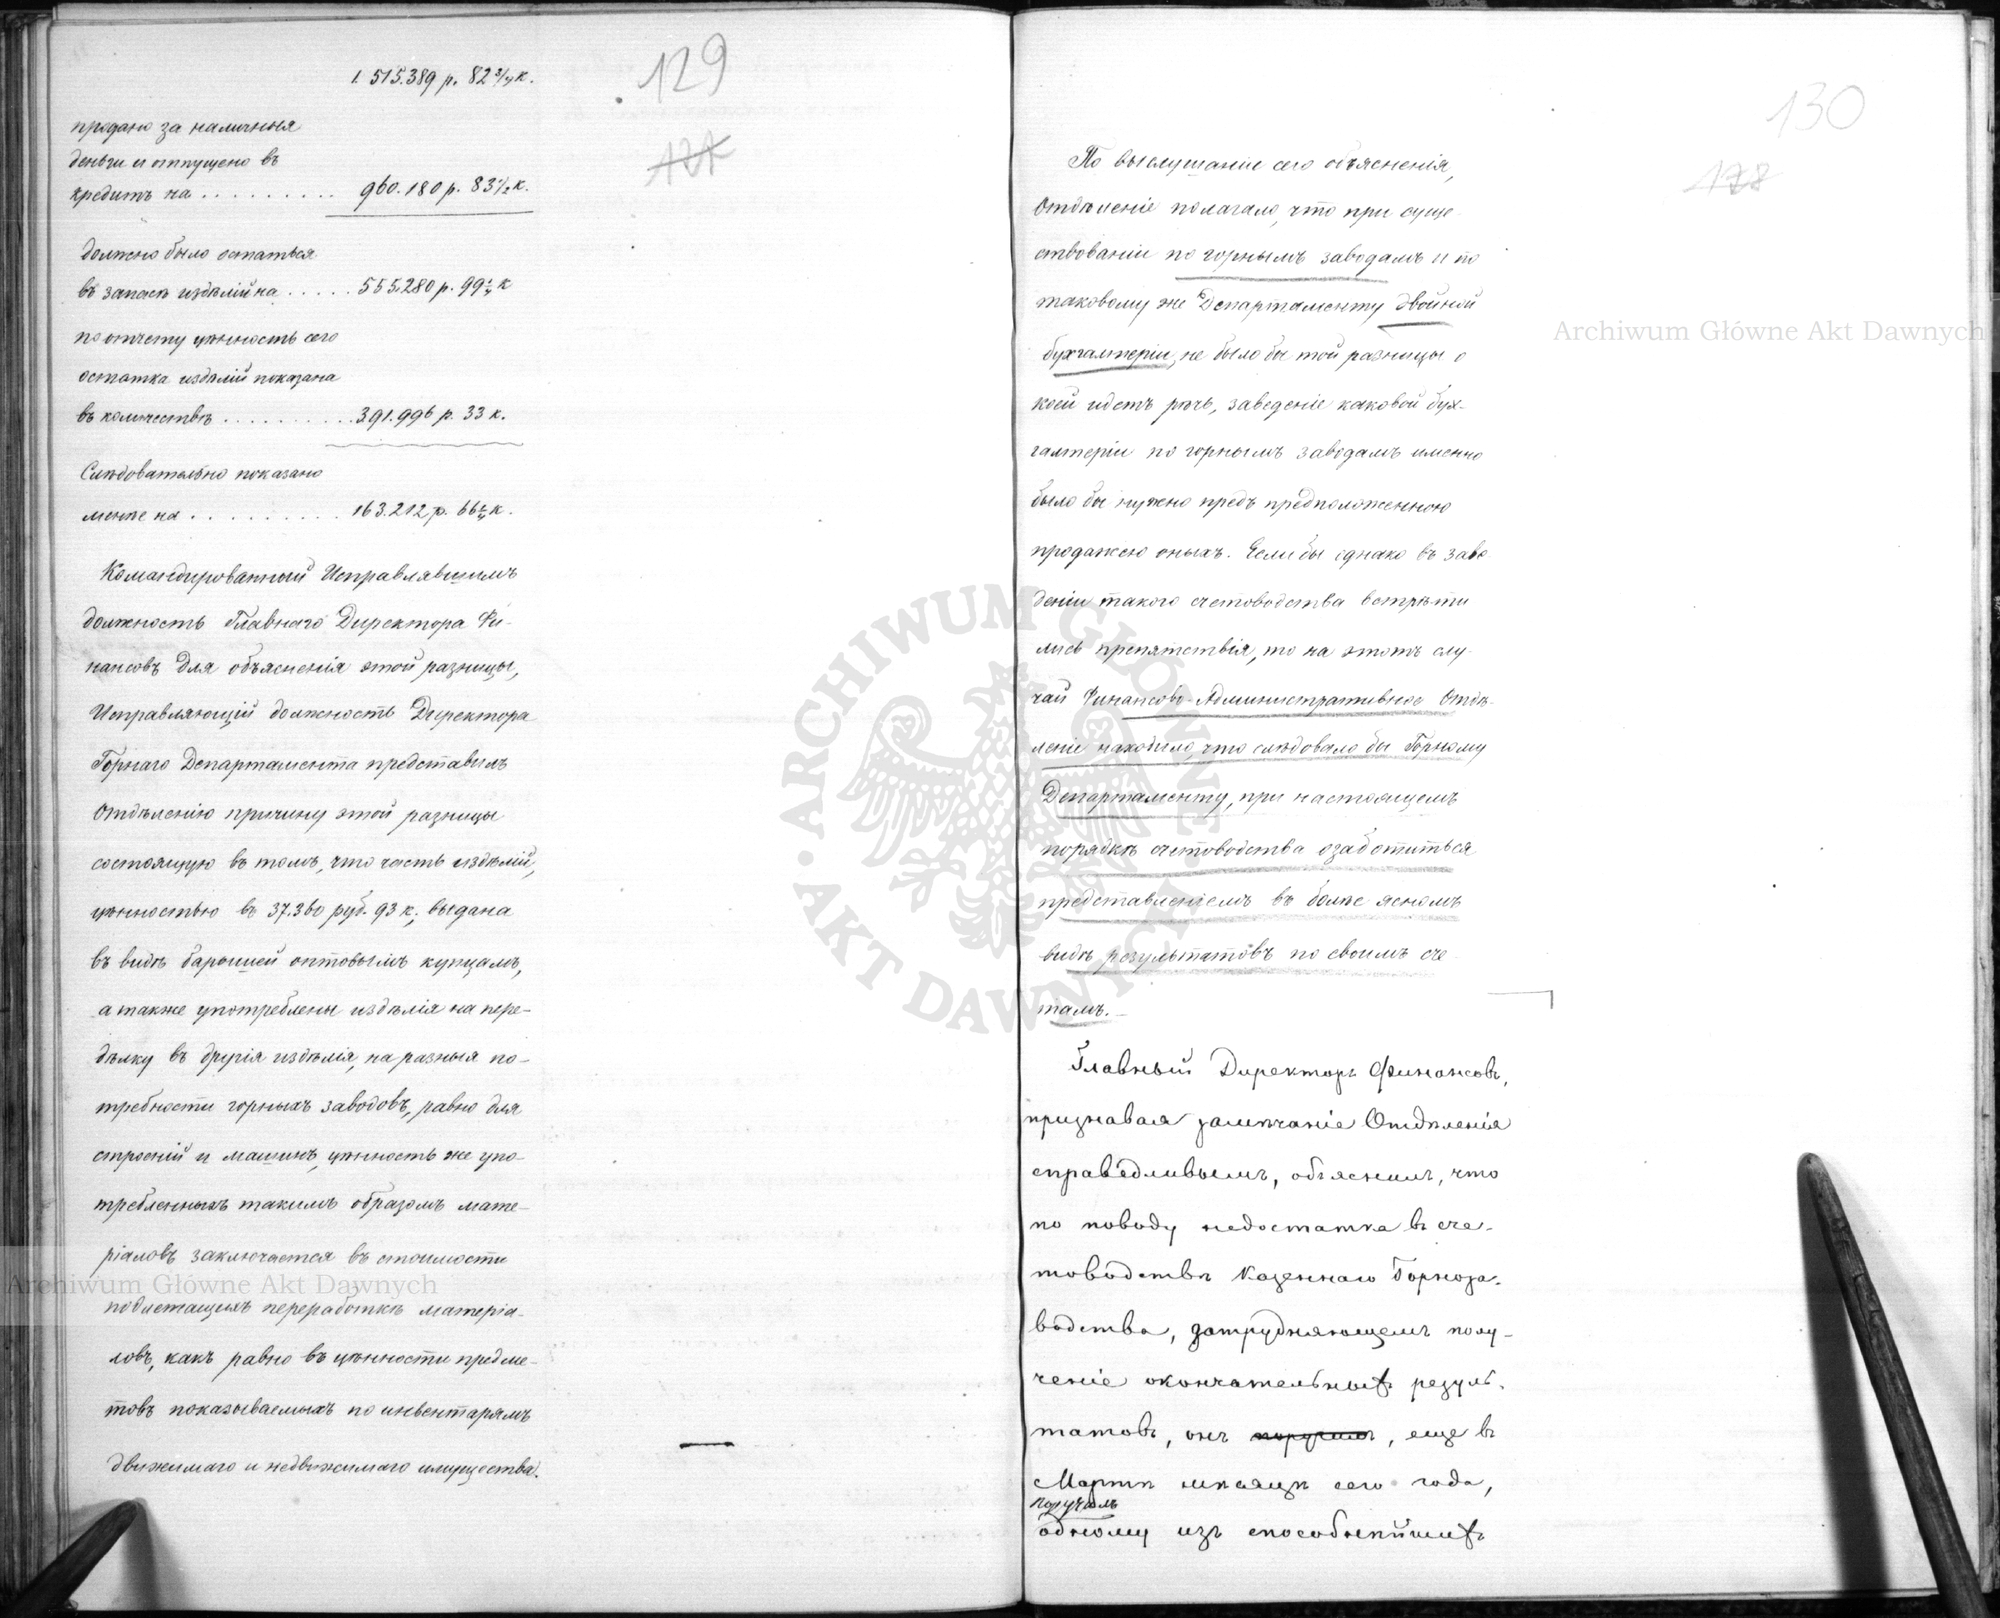 1.515.389 р. 82 3/4 к.
129
продано за наличныя
деньги и отпущено въ
кредитъ на . . . . . . . . . 960.180 р. 83 1/2 к.
должно было остаться
въ запасѣ издѣлій на . . . . . 555.280 р. 99 1/4 к
по отчету цѣнность сего
остатка издѣлій показана
въ количествѣ . . . . . . . . . . 391.996 р. 33 к.
Слѣдовательно показано
менѣе на . . . . . . . . . . 163.212 р. 66 1/4 к.
Командированный Исправлявшимъ
должность Главнаго Директора Фи-
нансовъ для объясненія этой разницы,
Исправляющій должность Директора
Горнаго Департамента представилъ
Отдѣленію причину этой разницы
состоящую въ томъ, что часть издѣлій,
цѣнностью въ 37.360 руб. 93 к., выдана
въ видѣ барышей оптовымъ купцамъ,
а также употреблены издѣлія на пере-
дѣлку въ другія издѣлія, на разныя по-
требности горныхъ заводовъ, равно для
строеній и машинъ, цѣнность же упо-
требленныхъ такимъ образомъ мате-
ріаловъ заключается въ стоимости
подлежащихъ переработкѣ матеріа-
ловъ, какъ равно въ цѣнности предме-
товъ показываемыхъ по инвентарямъ
движимаго и недвижимаго имущества.
130
128
По выслушаніи сего объясненія,
Отдѣленіе полагало, что при суще-
ствованіи по горнымъ заводамъ и по
таковому же Департаменту двойной
бухгалтеріи, не было бы той разницы о
коей идетъ рѣчь, заведеніе каковой бух-
галтеріи по горнымъ заводамъ именно
было бы нужно предъ предположенною
продажею оныхъ. Если бы однако въ заве
деніи такого счетоводства встрѣти
лись препятствія, то на этотъ слу-
чай Финансово-Административное Отдѣ-
леніе находило, что слѣдовало бы Горному
Департаменту, при настоящемъ
порядкѣ счетоводства озаботиться
представленіемъ въ болѣе ясномъ
видѣ результатовъ по своимъ сче-
тамъ.
Главный Директоръ Финансовъ,
признавая замѣчаніе Отдѣленія
справедливымъ, объяснилъ, что
по поводу недостатка въ сче-
товодствѣ Казеннаго Горноза-
водства, затрудняющемъ полу-
ченіе окончательныхъ резуль-
татовъ, онъ поручилъ, еще въ
Мартѣ мѣсяцѣ сего года,
поручилъ
одному изъ способнѣйшихъ
Archiwum Główne Akt Dawnych
Archiwum Główne Akt Dawnych
ARCHIWUM GŁÓWNE • AKT DAWNYCH •